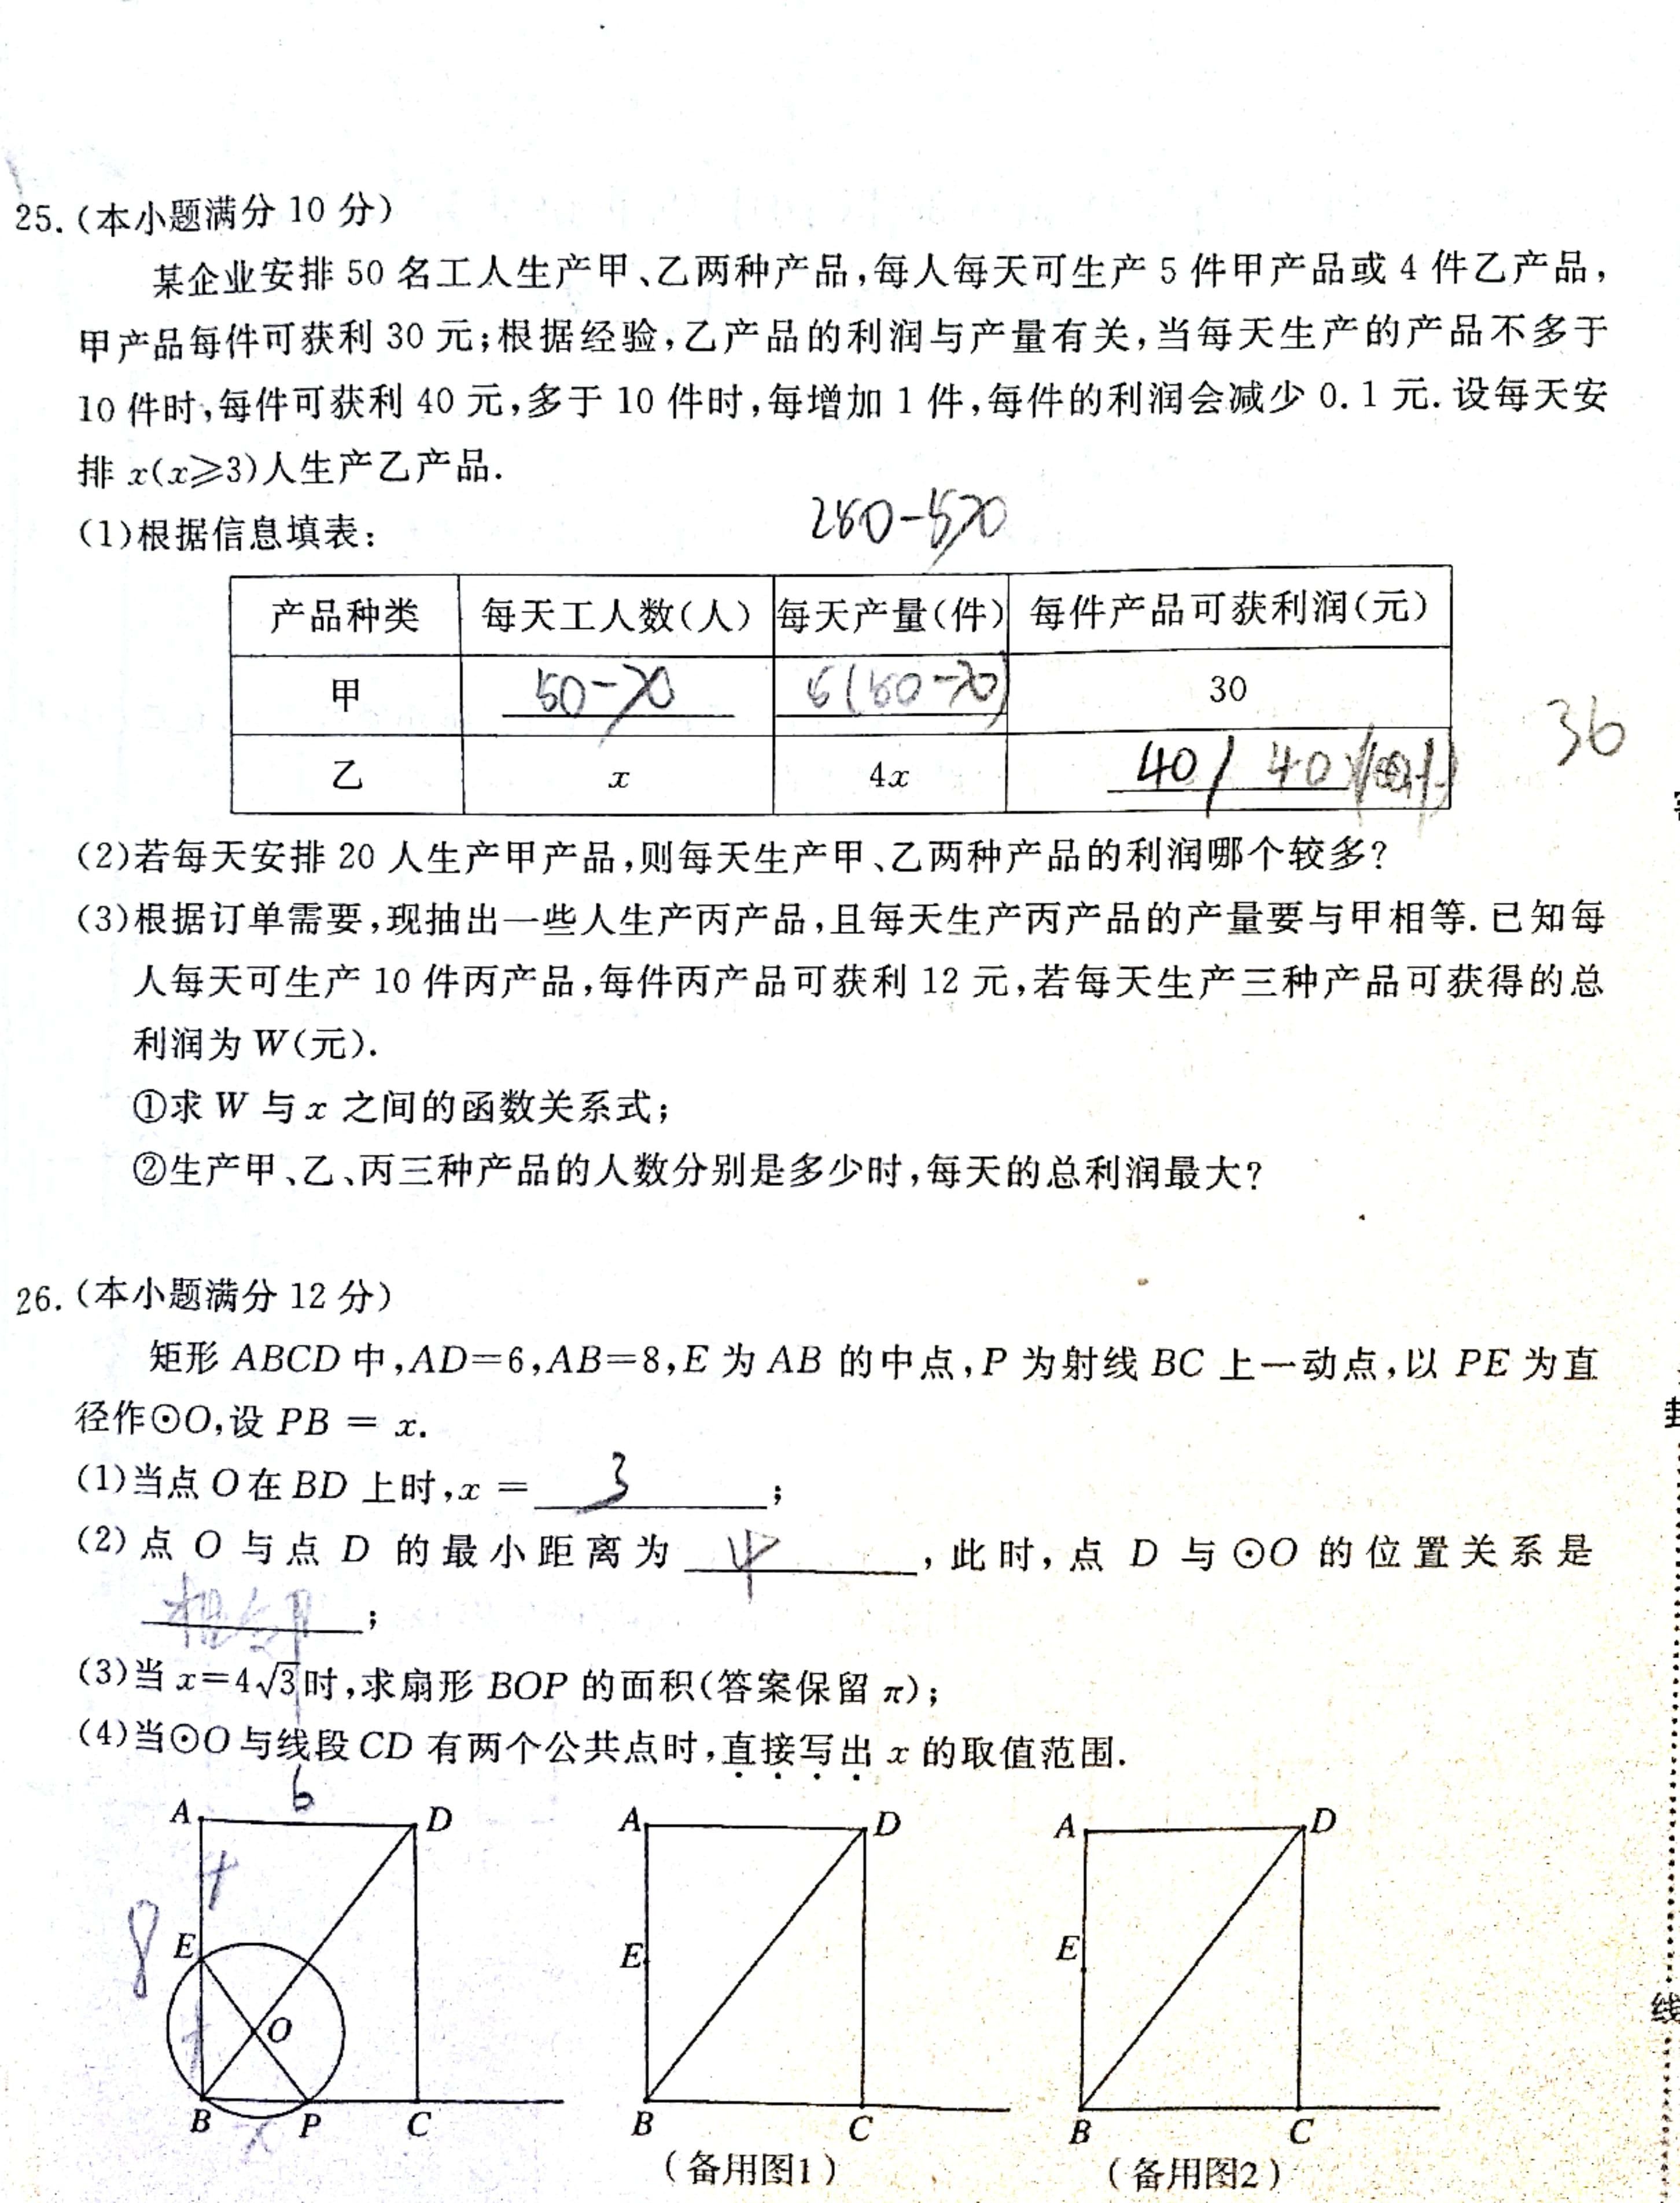 25.(本小题满分 10 分)
某企业安排 50 名工人生产甲、乙两种产品,每人每天可生产 5 件甲产品或 4 件乙产品,
甲产品每件可获利 30 元;根据经验,乙产品的利润与产量有关,当每天生产的产品不多于
10 件时,每件可获利 40 元,多于 10 件时,每增加 1 件,每件的利润会减少 0.1 元.设每天安
排 x(x≥3)人生产乙产品.
(1)根据信息填表:
250-5x
产品种类 每天工人数(人) 每天产量(件) 每件产品可获利润(元)
甲 50-x 5(50-x) 30
乙 x 4x 40/ 40
36
(2)若每天安排 20 人生产甲产品,则每天生产甲、乙两种产品的利润哪个较多?
(3)根据订单需要,现抽出一些人生产丙产品,且每天生产丙产品的产量要与甲相等.已知每
人每天可生产 10 件丙产品,每件丙产品可获利 12 元,若每天生产三种产品可获得的总
利润为 W(元).
①求 W 与 x 之间的函数关系式;
②生产甲、乙、丙三种产品的人数分别是多少时,每天的总利润最大?
26.(本小题满分 12 分)
矩形 ABCD 中,AD=6,AB=8,E 为 AB 的中点,P 为射线 BC 上一动点,以 PE 为直
径作⊙O,设 PB = x.
(1)当点 O 在 BD 上时,x = 3 ;
(2)点 O 与点 D 的最小距离为 4 ,此时,点 D 与⊙O 的位置关系是
;
(3)当 x=4√3时,求扇形 BOP 的面积(答案保留 π);
(4)当⊙O 与线段 CD 有两个公共点时,直接写出 x 的取值范围.
6
A D A D A D
8
E E E
O
B P C B C B C
x
(备用图1) (备用图2)
封
线